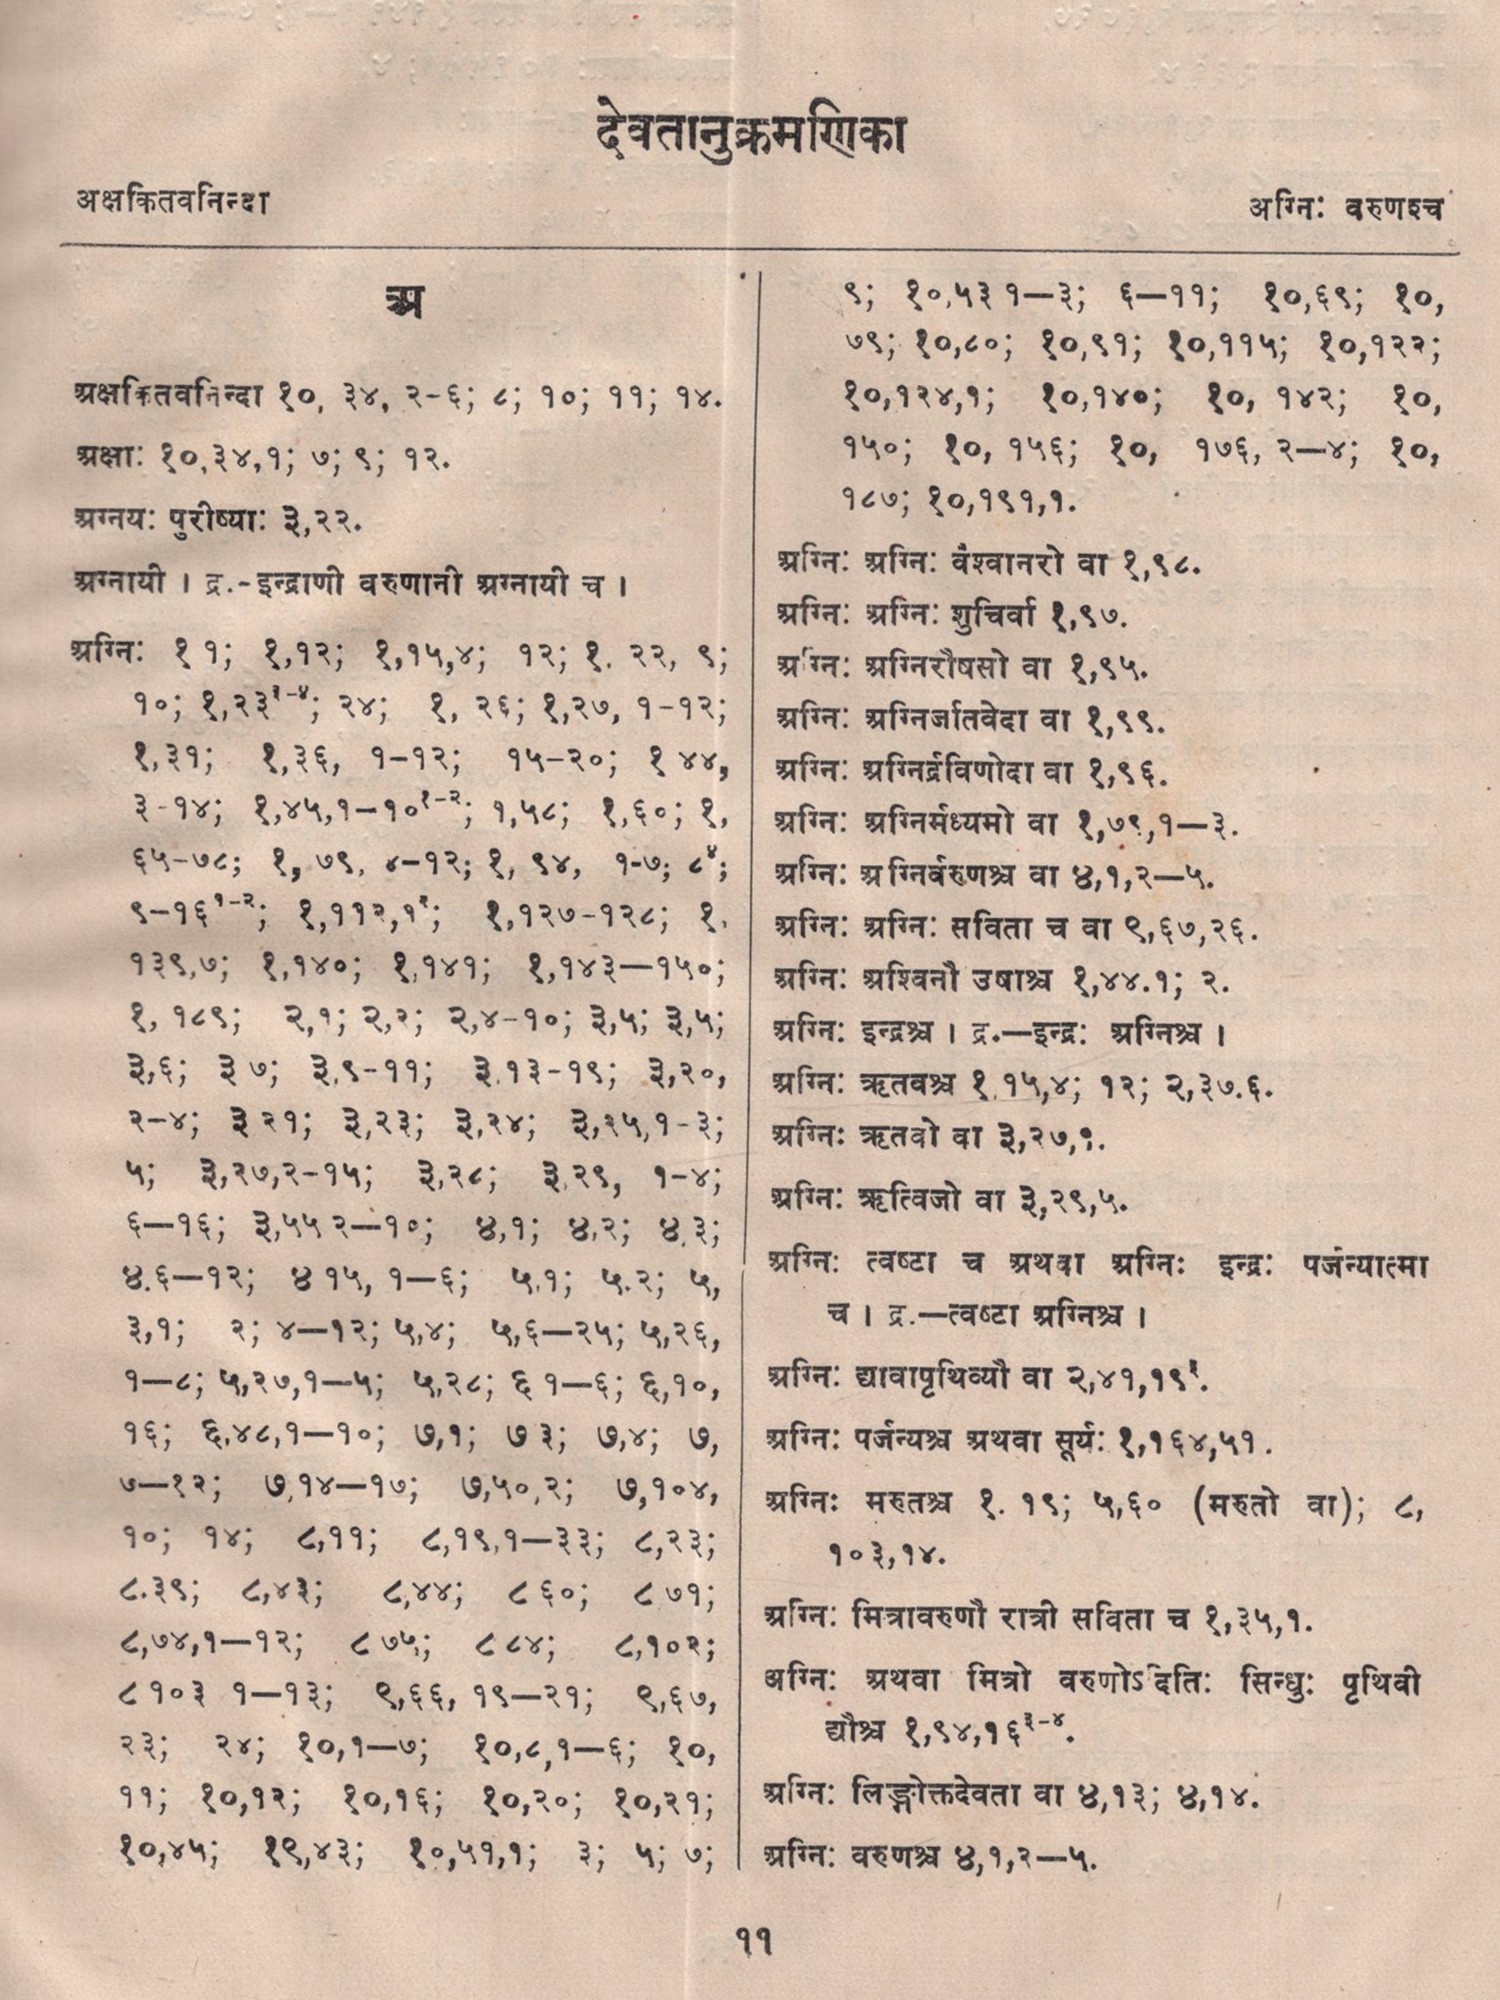 देवतानुक्रमणिका
अक्षकितवनिन्दा
अग्निः वरुणश्च
अ
अक्षकितवनिन्दा १०, ३४, २-६; ८; १०; ११; १४.
अक्षाः १०,३४,१; ७; ९; १२.
अग्नयः पुरीष्याः ३,२२.
अग्नायी । द्र.-इन्द्राणी वरुणानी अग्नायी च ।
अग्निः १ १; १,१२; १,१५,४; १२; १. २२, ९;
१०; १,२३³⁻⁴; २४; १, २६; १,२७, १-१२;
१,३१; १,३६, १-१२; १५-२०; १ ४४,
३-१४; १,४५,१-१०¹⁻²; १,५८; १,६०; १,
६५-७८; १, ७९, ४-१२; १, ९४, १-७; ८⁴;
९-१६¹⁻²; १,११२,१²; १,१२७-१२८; १.
१३९,७; १,१४०; १,१४१; १,१४३—१५०;
१, १८९; २,१; २,२; २,४-१०; ३,५; ३,५;
३,६; ३ ७; ३,९-११; ३.१३-१९; ३,२०,
२-४; ३ २१; ३,२३; ३,२४; ३,२५,१-३;
५; ३,२७,२-१५; ३,२८; ३.२९, १-४;
६—१६; ३,५५ २—१०; ४,१; ४,२; ४.३;
४.६—१२; ४ १५, १—६; ५.१; ५.२; ५,
३,१; २; ४—१२; ५,४; ५,६—२५; ५,२६,
१—८; ५,२७,१—५; ५,२८; ६ १—६; ६,१०,
१६; ६,४८,१—१०; ७,१; ७ ३; ७,४; ७,
७—१२; ७,१४—१७; ७,५०,२; ७,१०४,
१०; १४; ८,११; ८,१९,१—३३; ८,२३;
८.३९; ८,४३; ८,४४; ८ ६०; ८ ७१;
८,७४,१—१२; ८ ७५; ८ ८४; ८,१०२;
८ १०३ १—१३; ९,६६, १९—२१; ९,६७,
२३; २४; १०,१—७; १०,८,१—६; १०,
११; १०,१२; १०,१६; १०,२०; १०,२१;
१०,४५; १९,४३; १०,५१,१; ३; ५; ७;
९; १०,५३ १—३; ६—११; १०,६९; १०,
७९; १०,८०; १०,९१; १०,११५; १०,१२२;
१०,१२४,१; १०,१४०; १०, १४२; १०,
१५०; १०, १५६; १०, १७६, २—४; १०,
१८७; १०,१९१,१.
अग्निः अग्निः वैश्वानरो वा १,९८.
अग्निः अग्निः शुचिर्वा १,९७.
अग्निः अग्निरौषसो वा १,९५.
अग्निः अग्निर्जातवेदा वा १,९९.
अग्निः अग्निर्द्रविणोदा वा १,९६.
अग्निः अग्निर्मध्यमो वा १,७९,१—३.
अग्निः अग्निर्वरुणश्च वा ४,१,२—५.
अग्निः अग्निः सविता च वा ९,६७,२६.
अग्निः अश्विनौ उषाश्च १,४४.१; २.
अग्निः इन्द्रश्च । द्र.—इन्द्रः अग्निश्च ।
अग्निः ऋतवश्च १.१५,४; १२; २,३७.६.
अग्निः ऋतवो वा ३,२७,१.
अग्निः ऋत्विजो वा ३,२९,५.
अग्निः त्वष्टा च अथवा अग्निः इन्द्रः पर्जन्यात्मा
च । द्र.—त्वष्टा अग्निश्च ।
अग्निः द्यावापृथिव्यौ वा २,४१,१९¹.
अग्निः पर्जन्यश्च अथवा सूर्यः १,१६४,५१.
अग्निः मरुतश्च १. १९; ५,६० (मरुतो वा); ८,
१०३,१४.
अग्निः मित्रावरुणौ रात्री सविता च १,३५,१.
अग्निः अथवा मित्रो वरुणोऽदितिः सिन्धुः पृथिवी
द्यौश्च १,९४,१६³⁻⁴.
अग्निः लिङ्गोक्तदेवता वा ४,१३; ४,१४.
अग्निः वरुणश्च ४,१,२—५.
११